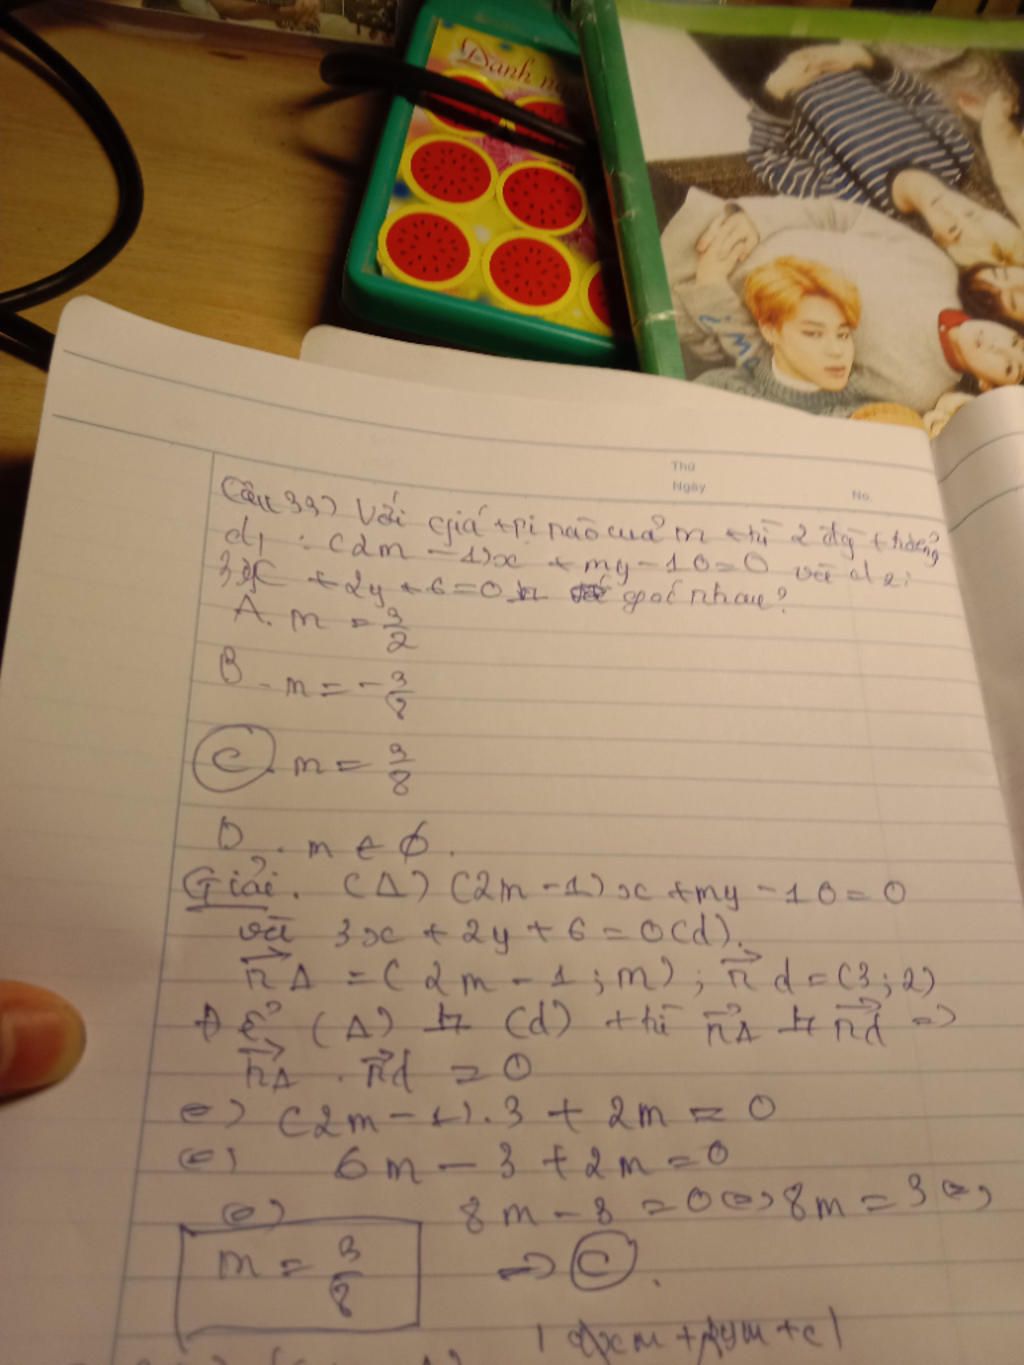 Danh
Thứ
Ngày
No.
Câu 33) Với giá trị nào của m thì 2 đg thẳng
d1 : (2m - 1)x + my - 10 = 0 và d2:
3x + 2y + 6 = 0 góc nhau?
A. m = 3/2
B. m = -3/8
C. m = 3/8
D. m ∈ ∅.
Giải. (Δ) (2m - 1)x + my - 10 = 0
và 3x + 2y + 6 = 0 (d).
n⃗Δ = (2m - 1; m); n⃗d = (3; 2)
Để (Δ) ⊥ (d) thì n⃗Δ ⊥ n⃗d =>
n⃗Δ . n⃗d = 0
<=> (2m - 1).3 + 2m = 0
<=> 6m - 3 + 2m = 0
<=> 8m - 3 = 0 <=> 8m = 3 <=>
m = 3/8 => C.